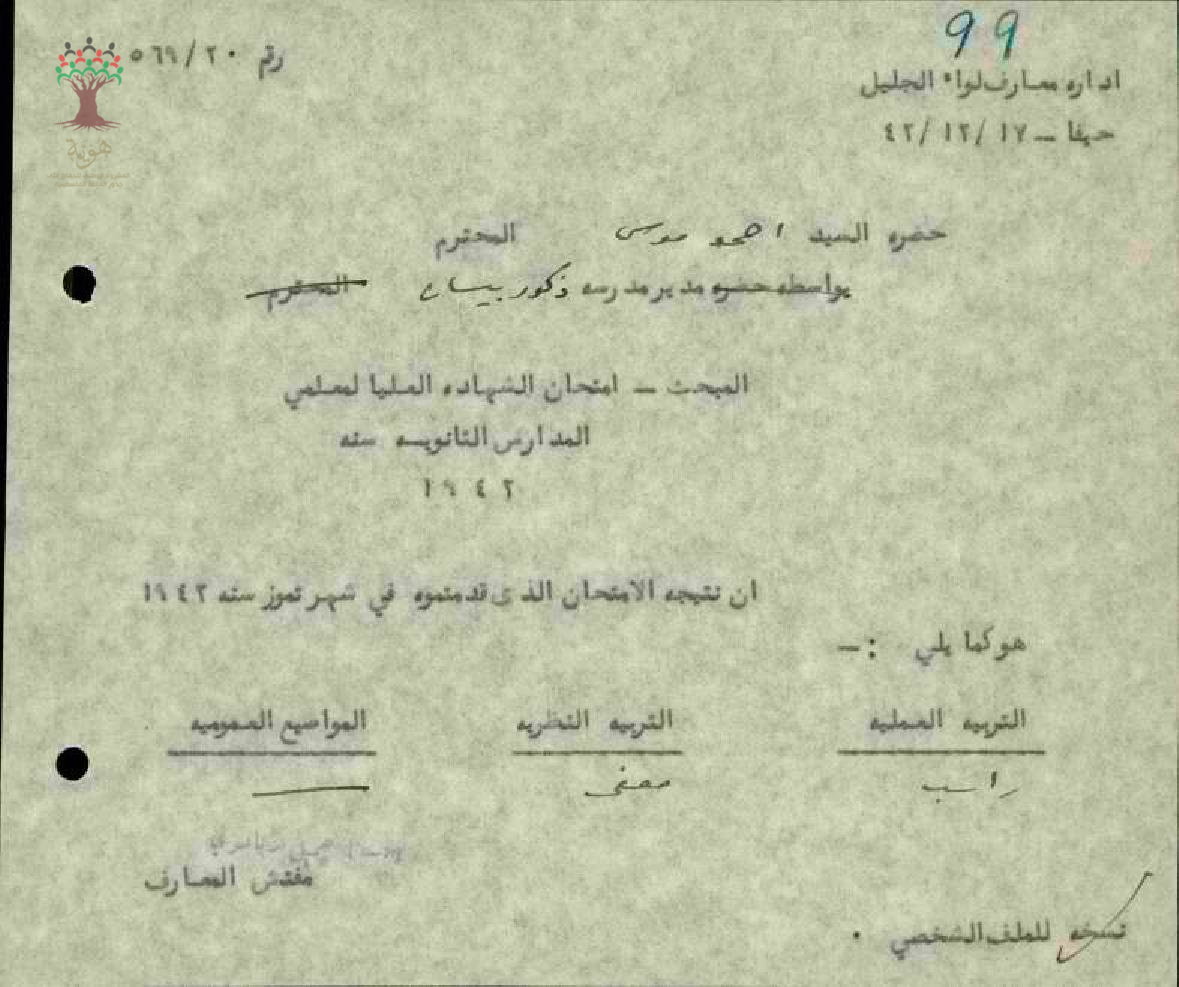 99
رقم ٥٦٩/٢٠
اداره معارف لواء الجليل
حيفا – ٤٢/١٢/١٧
هوية
حضره السيد احمد موسى المحترم
بواسطه حضره مدير مدرسه ذكور بيسان المحترم
المبحث – امتحان الشهاده العليا لمعلمي
المدارس الثانويه سنه
١٩٤٢
ان نتيجه الامتحان الذى قدمتموه في شهر تموز سنه ١٩٤٢
هو كما يلي :–
التربيه العمليه التربيه النظريه المواضيع العموميه
راسب معفى —
مفتش المعارف
نسخه للملف الشخصي .